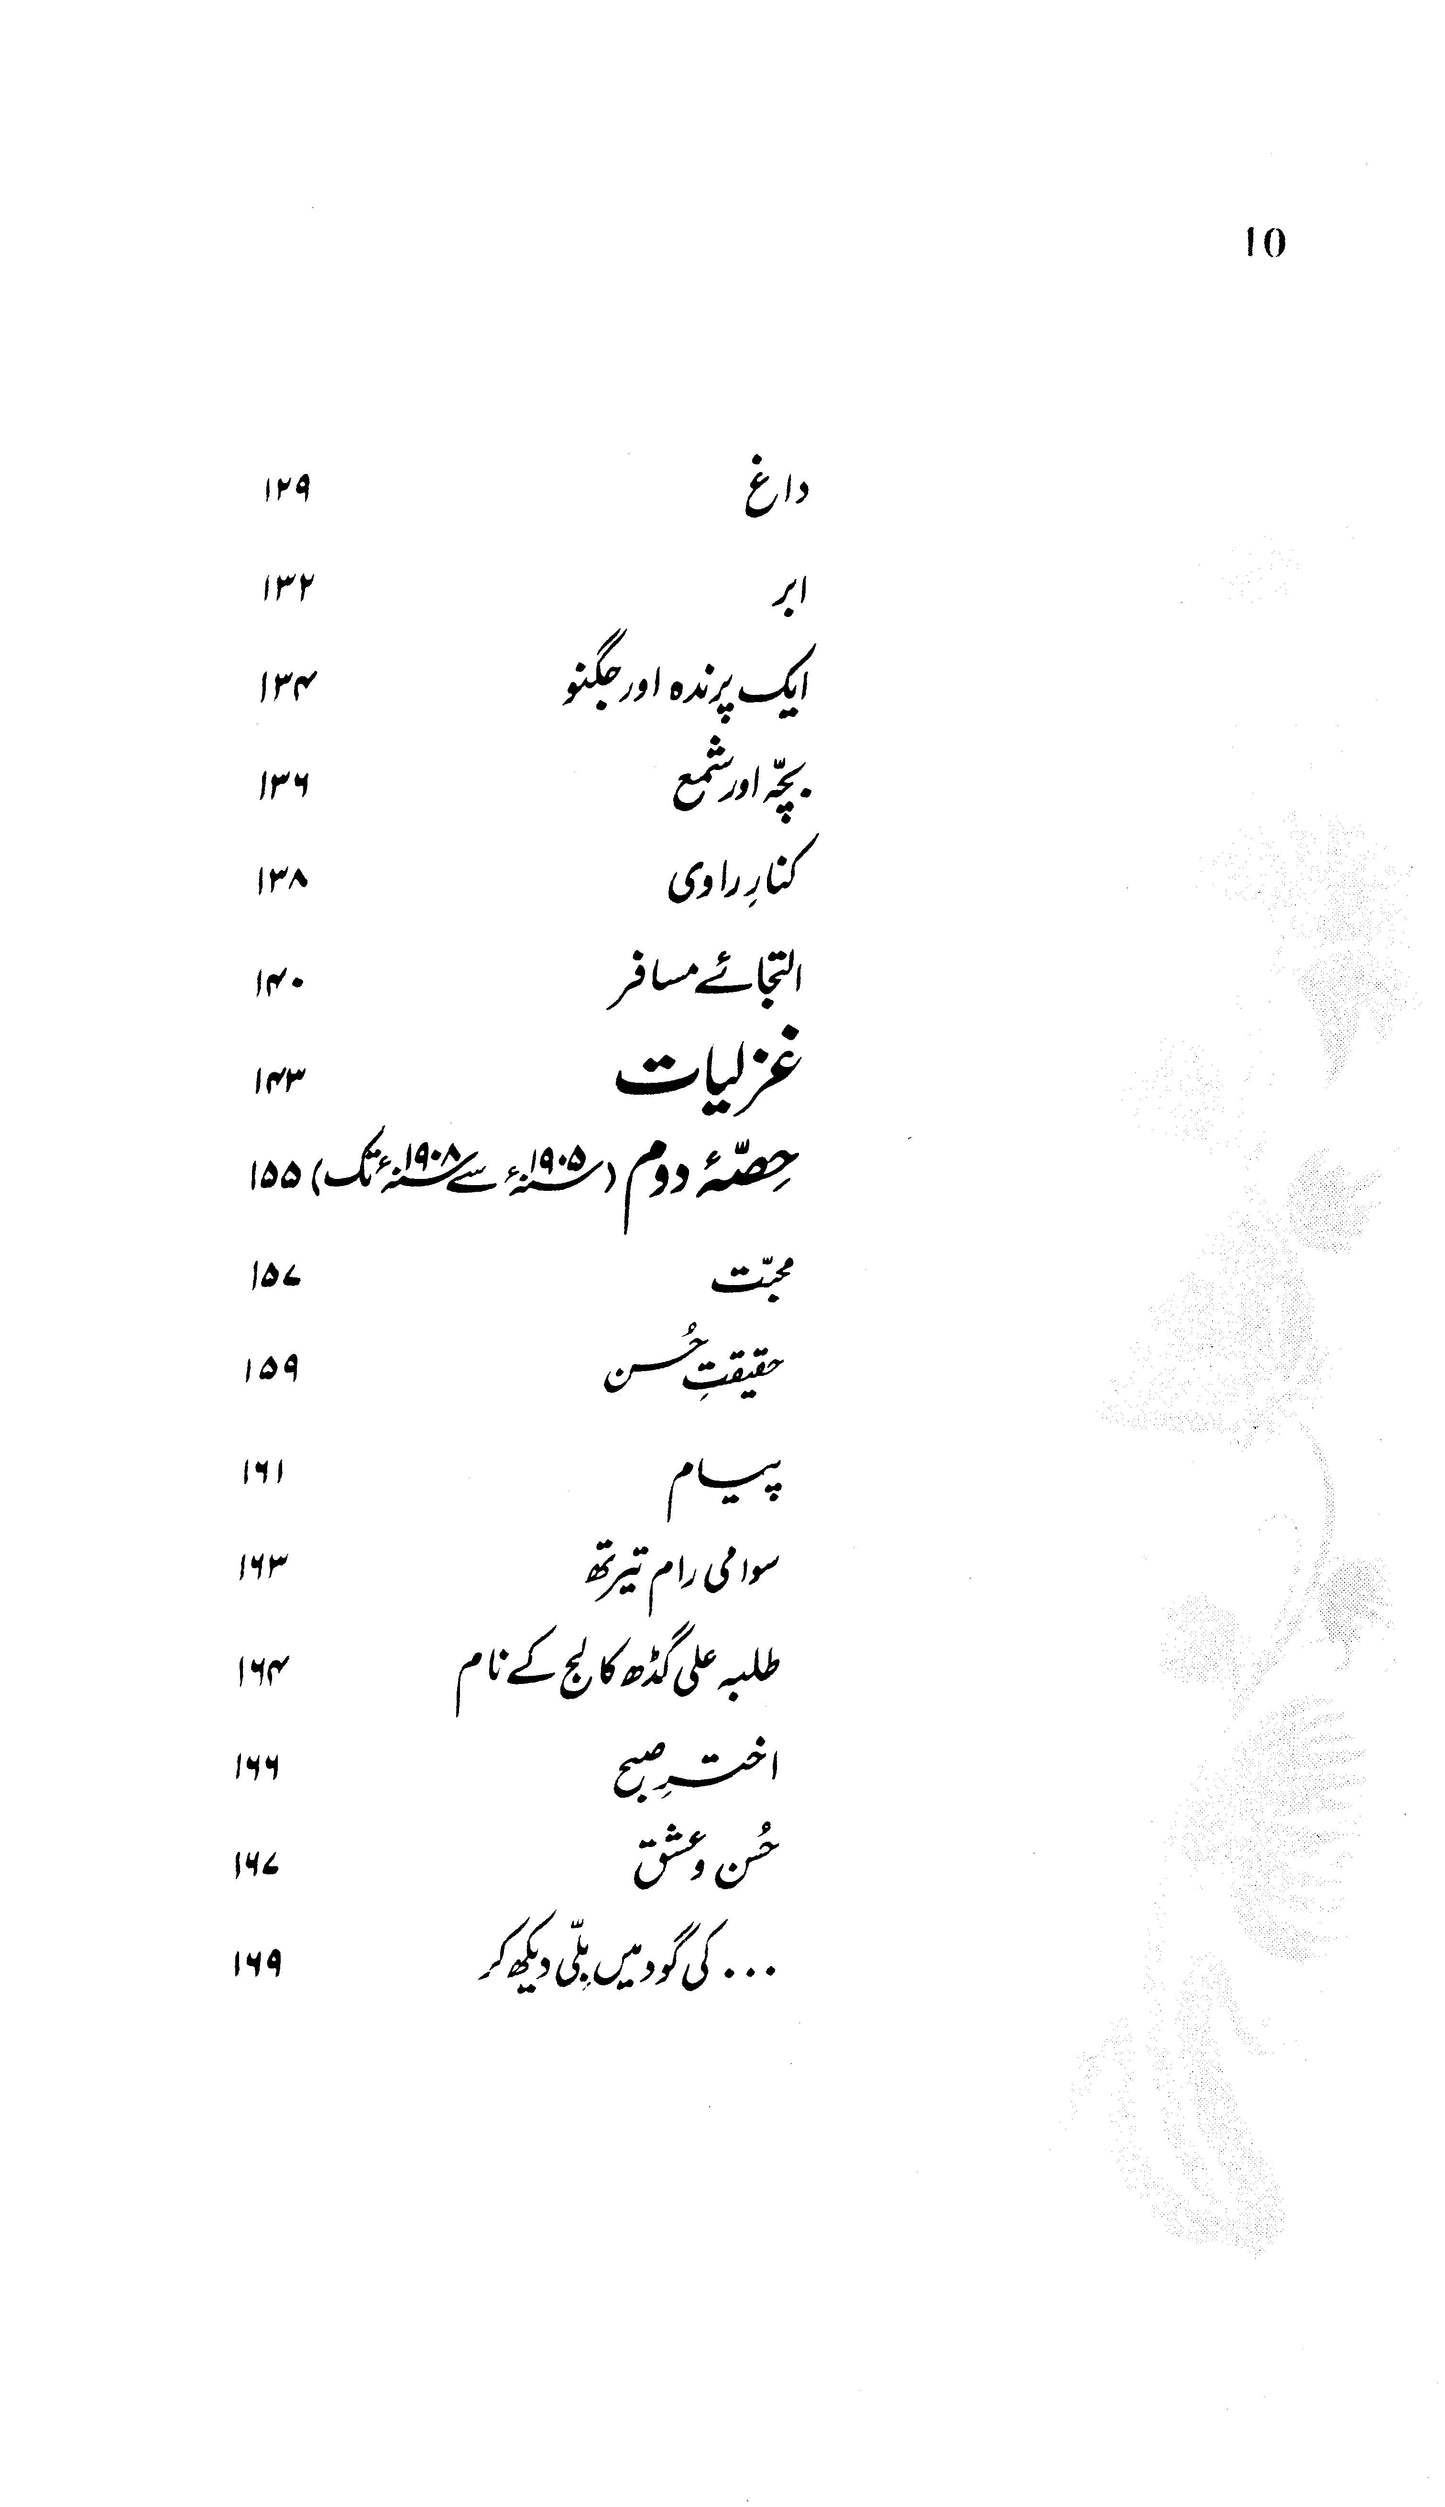 10
داغ ۱۲۹
ابر ۱۳۲
ایک پرندہ اور جگنو ۱۳۴
بچّہ اور شمع ۱۳۶
کنارِ راوی ۱۳۸
التجائے مسافر ۱۴۰
غزلیات ۱۴۳
حِصّۂ دوم (۱۹۰۵ سنۂ سے ۱۹۰۸ سنۂ تک) ۱۵۵
محبّت ۱۵۷
حقیقتِ حُسن ۱۵۹
پیام ۱۶۱
سوامی رام تیرتھ ۱۶۳
طلبہ علی گڈھ کالج کے نام ۱۶۴
اخترِ صبح ۱۶۶
حُسن و عشق ۱۶۷
... کی گود میں بِلّی دیکھ کر ۱۶۹